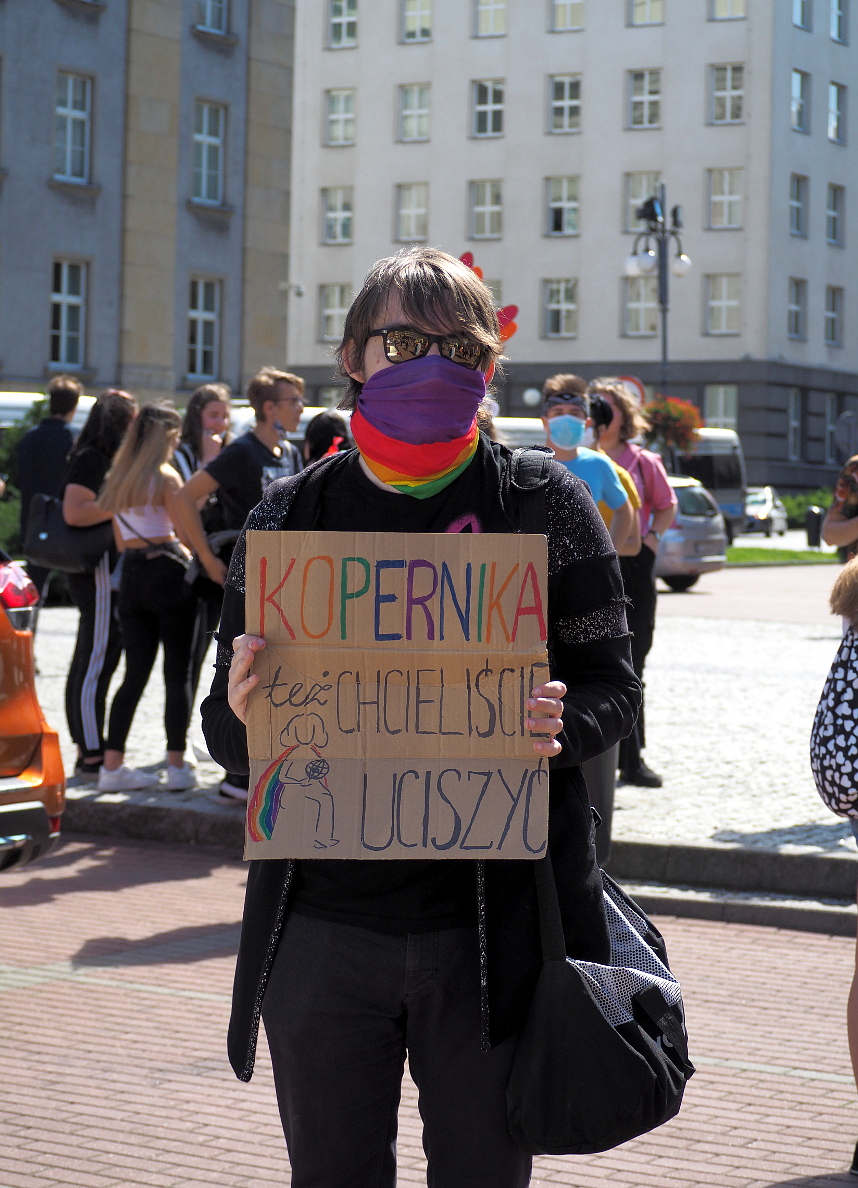 KOPERNIKA
też CHCIELIŚCIE
UCISZYĆ